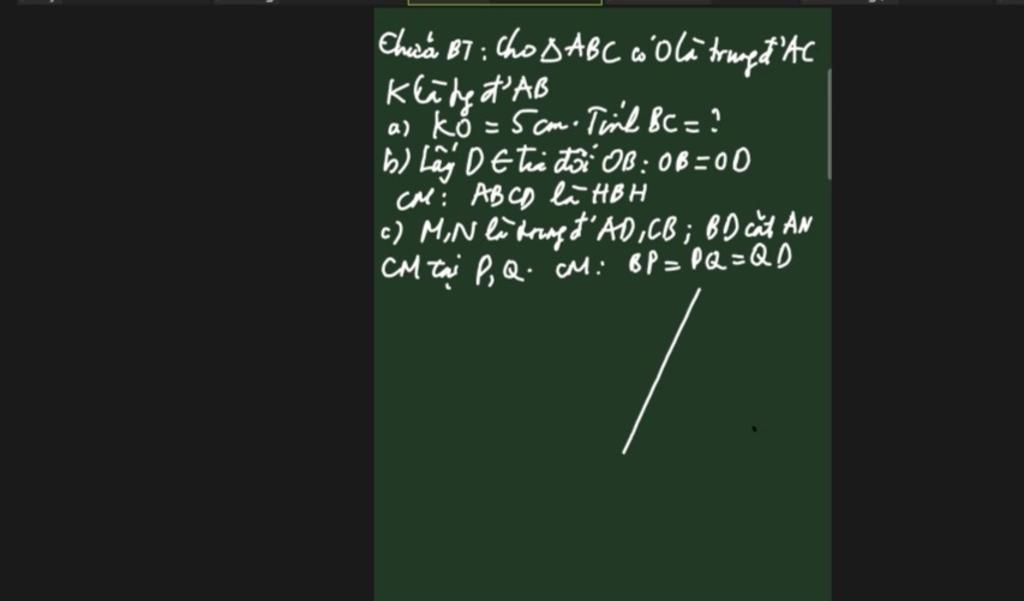 Chữa BT: Cho ΔABC có O là trung đ' AC
K là tg đ' AB
a) KO = 5cm. Tính BC = ?
b) Lấy D ∈ tia đối OB: OB = OD
CM: ABCD là HBH
c) M,N là trung đ' AD,CB; BD cắt AN
CM tại P,Q. CM: BP = PQ = QD